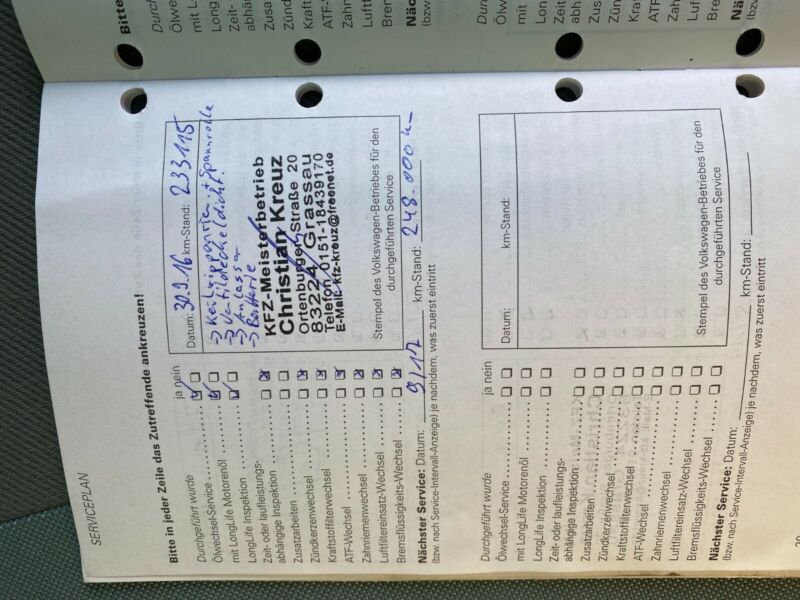 SERVICEPLAN
Bitte in jeder Zeile das Zutreffende ankreuzen!
Durchgeführt wurde ja nein
Ölwechsel-Service
mit LongLife Motorenöl
LongLife Inspektion
Zeit- oder laufleistungs-
abhängige Inspektion
Zusatzarbeiten
Zündkerzenwechsel
Kraftstofffilterwechsel
ATF-Wechsel
Zahnriemenwechsel
Luftfiltereinsatz-Wechsel
Bremsflüssigkeits-Wechsel
Datum: 30.9.16 km-Stand: 233115
→ Keilrippenrie. + Spannrolle
→ Ventildeckeldicht.
→ Anlasser
→ Batterie
KFZ-Meisterbetrieb
Christian Kreuz
Ortenburger Straße 20
83224 Grassau
Telefon 0151-18439170
E-Mail: kfz-kreuz@freenet.de
Stempel des Volkswagen-Betriebes für den
durchgeführten Service
Nächster Service: Datum: 9/17 km-Stand: 248.000
(bzw. nach Service-Intervall-Anzeige) je nachdem, was zuerst eintritt
Durchgeführt wurde ja nein
Ölwechsel-Service
mit LongLife Motorenöl
LongLife Inspektion
Zeit- oder laufleistungs-
abhängige Inspektion
Zusatzarbeiten
Zündkerzenwechsel
Kraftstofffilterwechsel
ATF-Wechsel
Zahnriemenwechsel
Luftfiltereinsatz-Wechsel
Bremsflüssigkeits-Wechsel
Datum: km-Stand:
Stempel des Volkswagen-Betriebes für den
durchgeführten Service
Nächster Service: Datum: km-Stand:
(bzw. nach Service-Intervall-Anzeige) je nachdem, was zuerst eintritt